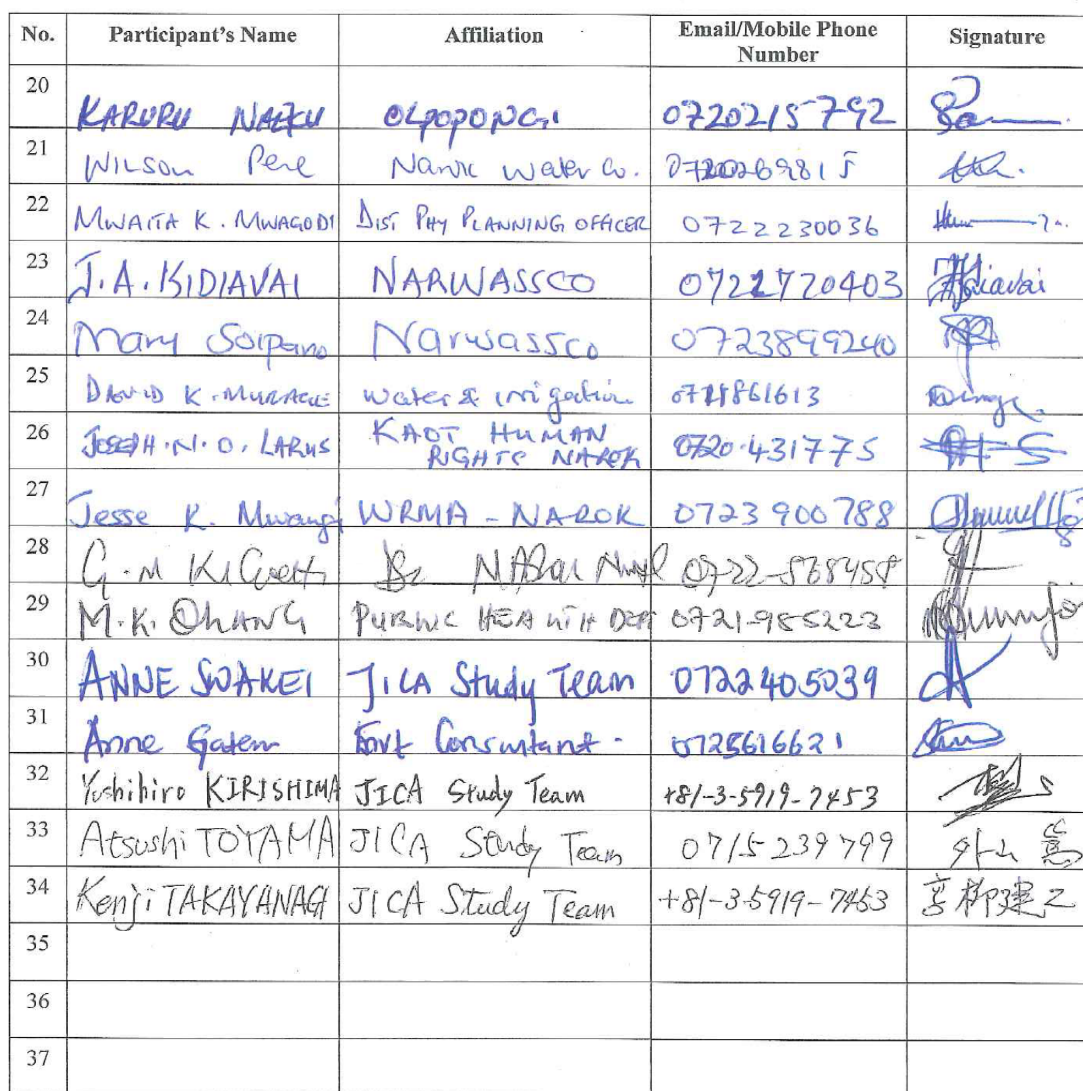 No. Participant's Name Affiliation Email/Mobile Phone Number Signature
20 KARURU OLPOPONGI 0720215792
21 WILSON Pere Narok Water Co. 0720269815
22 MWAITA K. MWAGODI DIST PHY PLANNING OFFICER 0722230036
23 J.A. KIDIAVAI NARWASSCO 0721720403
24 Mary Soipano Narwassco 0723899240
25 DAVID K. water & irrigation
26 JOSEPH. N. O. LARUS HUMAN RIGHTS NAROK 0720.431775
27 Jesse K. Mwangi WRMA - NAROK 0723 900 788
28 G.M 0722-
29 M.K. PUBLIC HEALTH DEPT 0721-985223
30 ANNE SWAKEI JICA Study Team 0722405039
31 Anne Consultant. 0725616621
32 Yoshihiro KIRISHIMA JICA Study Team +81-3-5919-7453
33 Atsushi TOYAMA JICA Study Team 0715 239 799 外山
34 Kenji TAKAYANAGI JICA Study Team +81-3-5919-7453
35
36
37